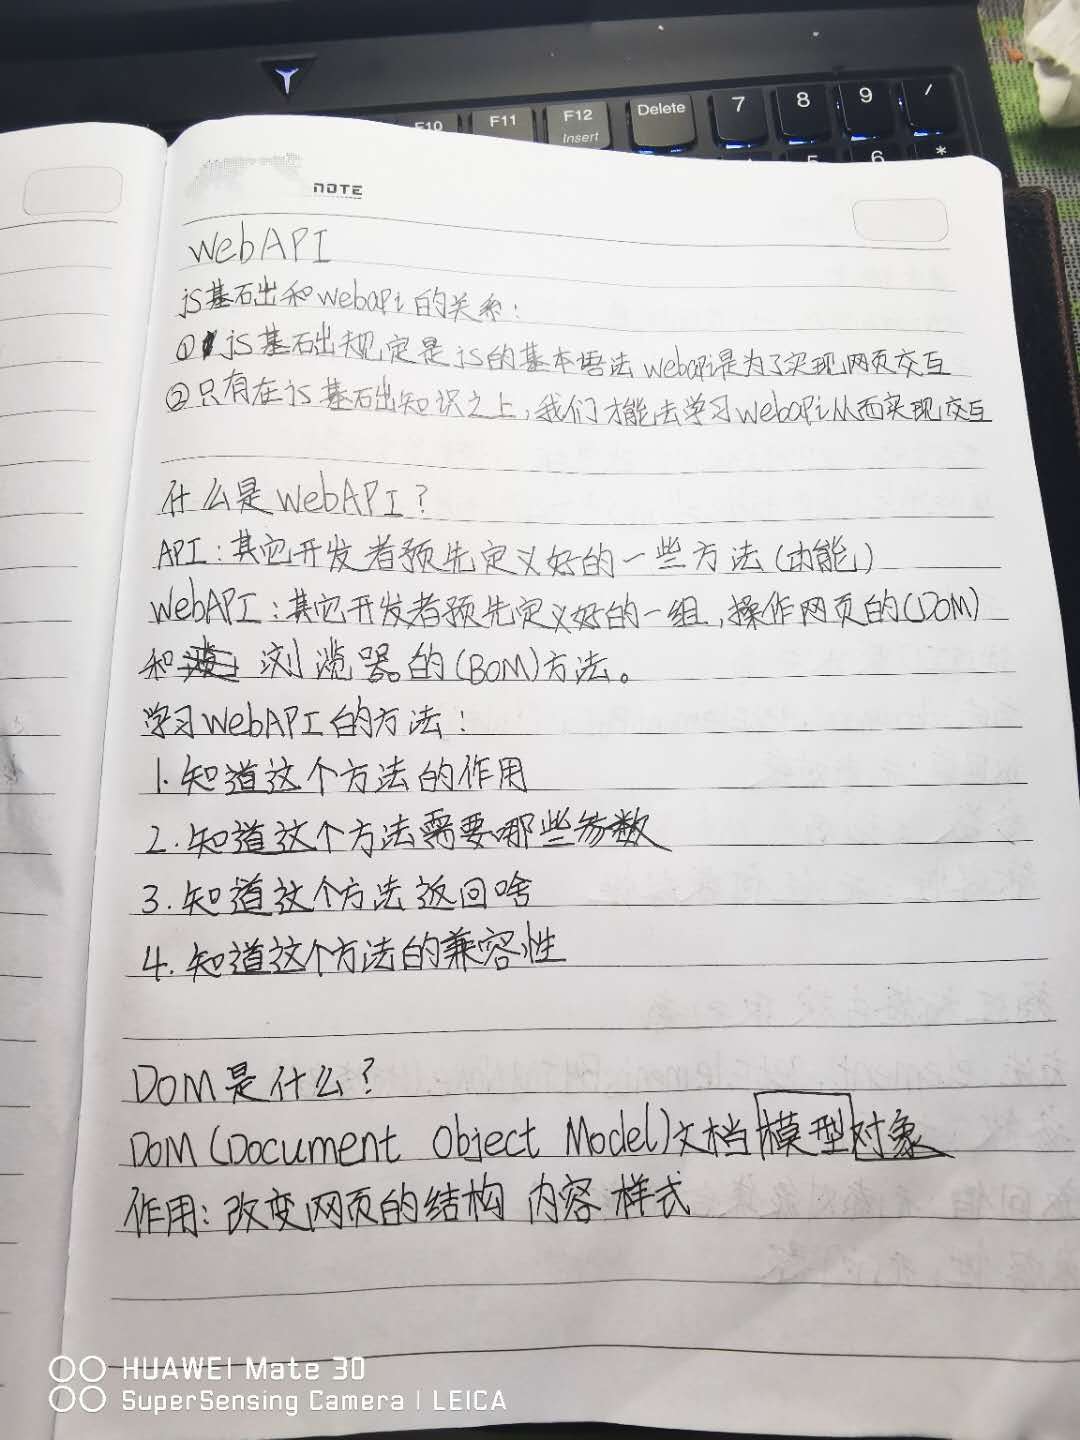 F10
F11
F12
Insert
Delete
7
8
9
/
5
6
*
NOTE
WebAPI
js基础和webapi的关系:
① js基础规定是js的基本语法 webapi是为了实现网页交互
②只有在js基础知识之上,我们才能去学习webapi从而实现交互
什么是WebAPI?
API:其它开发者预先定义好的一些方法(功能)
WebAPI:其它开发者预先定义好的一组,操作网页的(DOM)
和 浏览器的(BOM)方法。
学习WebAPI的方法:
1.知道这个方法的作用
2.知道这个方法需要哪些参数
3.知道这个方法返回啥
4.知道这个方法的兼容性
DOM是什么?
DOM(Document Object Model)文档模型对象
作用:改变网页的结构 内容 样式
HUAWEI Mate 30
SuperSensing Camera | LEICA